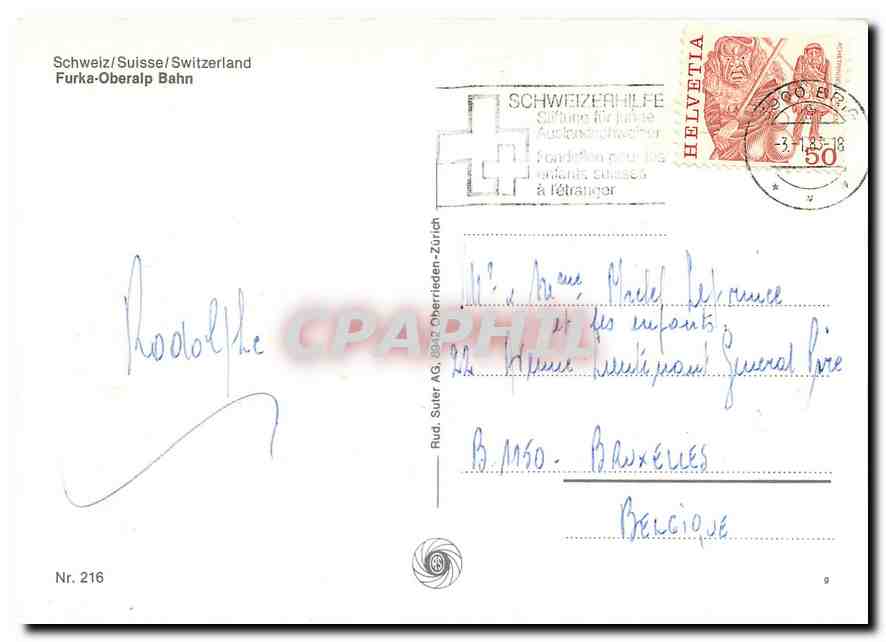 Schweiz/Suisse/Switzerland
Furka-Oberalp Bahn
SCHWEIZERHILFE
Stiftung für junge
Auslandschweizer
Fondation pour les
enfants suisses
à l'étranger
HELVETIA
50
3900 BRIG
-3.-1.83-18
Rodolphe
Rud. Suter AG, 8942 Oberrieden-Zürich
CPAPHIL
Mr & Mme Michel Leprince
et ses enfants
22 Avenue Lieutenant Général Gire
B 1150 - BRUXELLES
BELGIQUE
Nr. 216
g